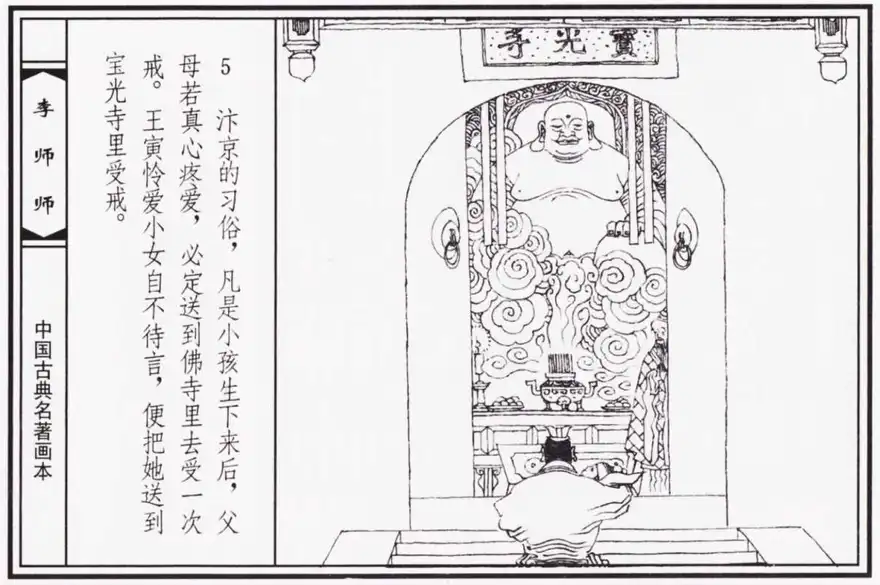 李师师
中国古典名著画本
5 汴京的习俗，凡是小孩生下来后，父
母若真心疼爱，必定送到佛寺里去受一次
戒。王寅怜爱小女自不待言，便把她送到
宝光寺里受戒。
寶光寺